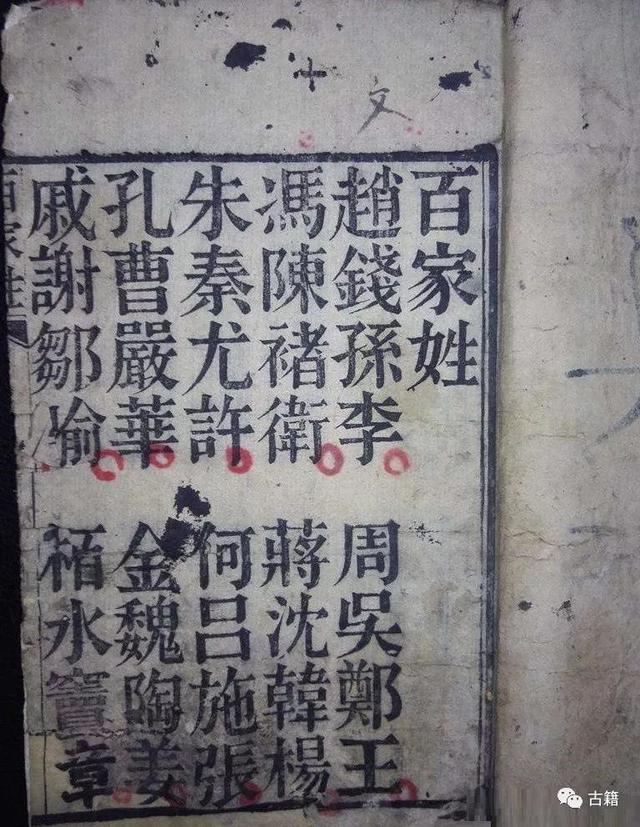 十
文
百家姓
趙錢孫李
周吳鄭王
馮陳褚衛
蔣沈韓楊
朱秦尤許
何呂施張
孔曹嚴華
金魏陶姜
戚謝鄒喻
栢水竇章
百家姓
古籍